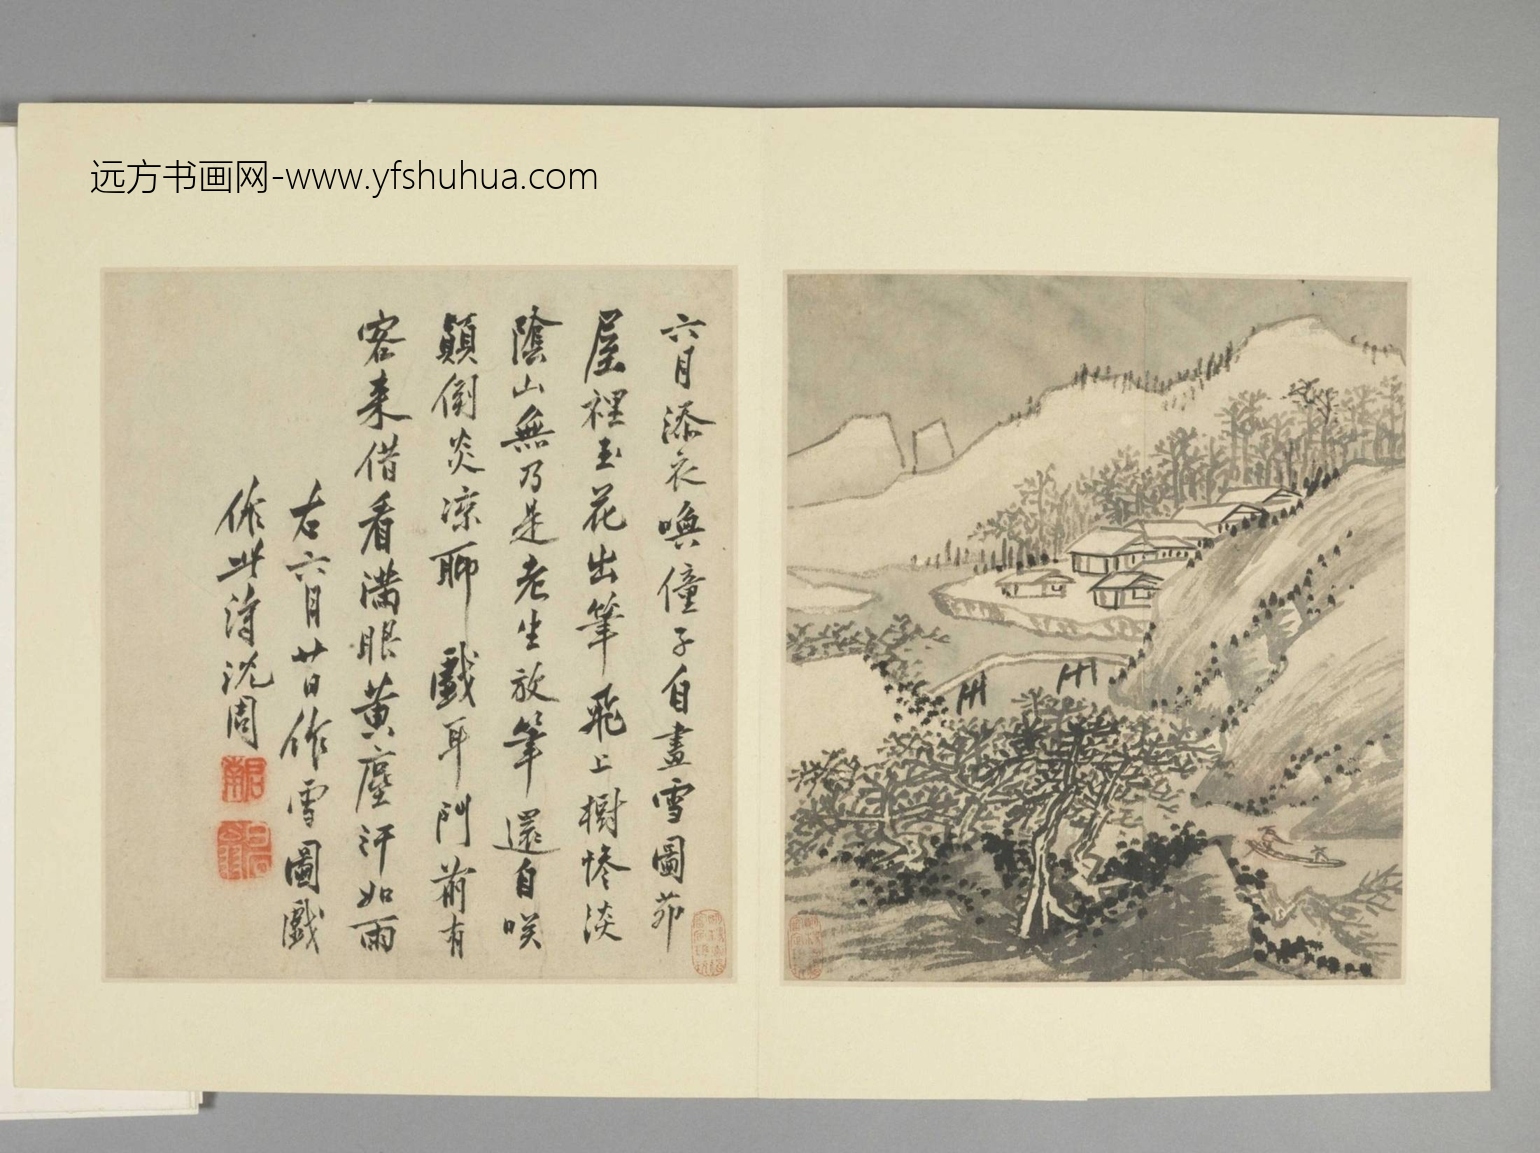 远方书画网-www.yfshuhua.com
六月添衣喚僮子自畫雪圖茆
屋裡玉花出筆飛上樹慘淡
陰山無乃是老生放筆還自咲
顛倒炎凉聊戲耳門前有
客来借看滿眼黃塵汗如雨
右六月廿日作雪圖戲
作此詩沈周
啟南
白石翁